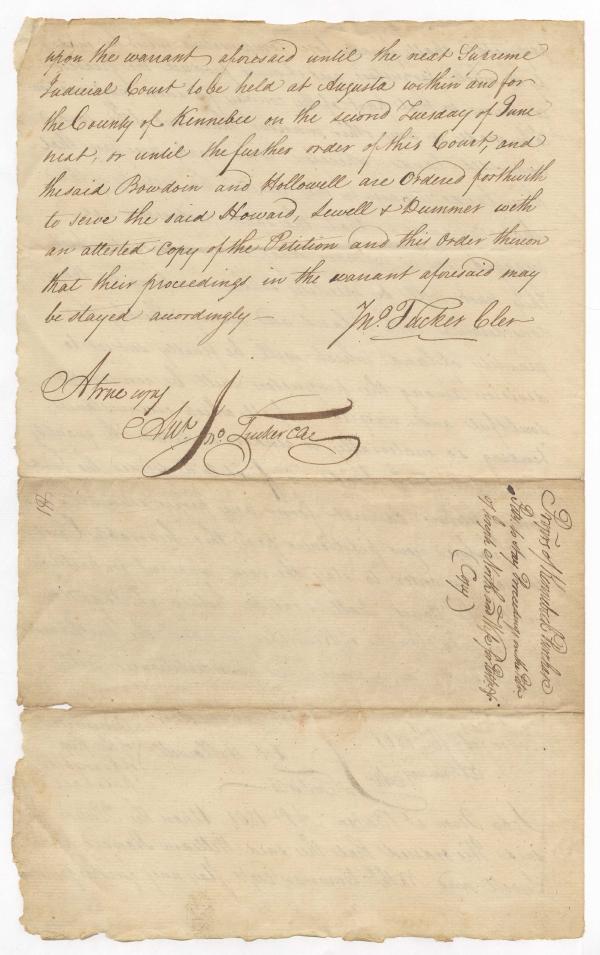 upon the warrant aforesaid until the next Supreme
Judicial Court to be held at Augusta within and for
the County of Kennebec on the second Tuesday of June
next, or until the further order of this Court, and
the said Bowdoin and Hollowell are Ordered forthwith
to serve the said Howard, Sewell & Dummer with
an attested copy of the Petition and this Order thereon
that their proceedings in the warrant aforesaid may
be stayed accordingly —
Jno. Tucker Cler
A true copy
Attt. Jno Tucker Cler
Proprs of Kennebeck Purchase
Petn. to stay Proceedings on the Petn.
of Joseph North and Wife for Partition
(Copy)